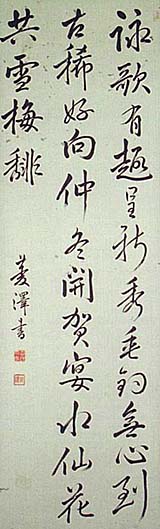 詠歌有趣呈新秀垂釣無心到
古稀好向仲冬開賀宴水仙花
共雪梅馡
菱澤書